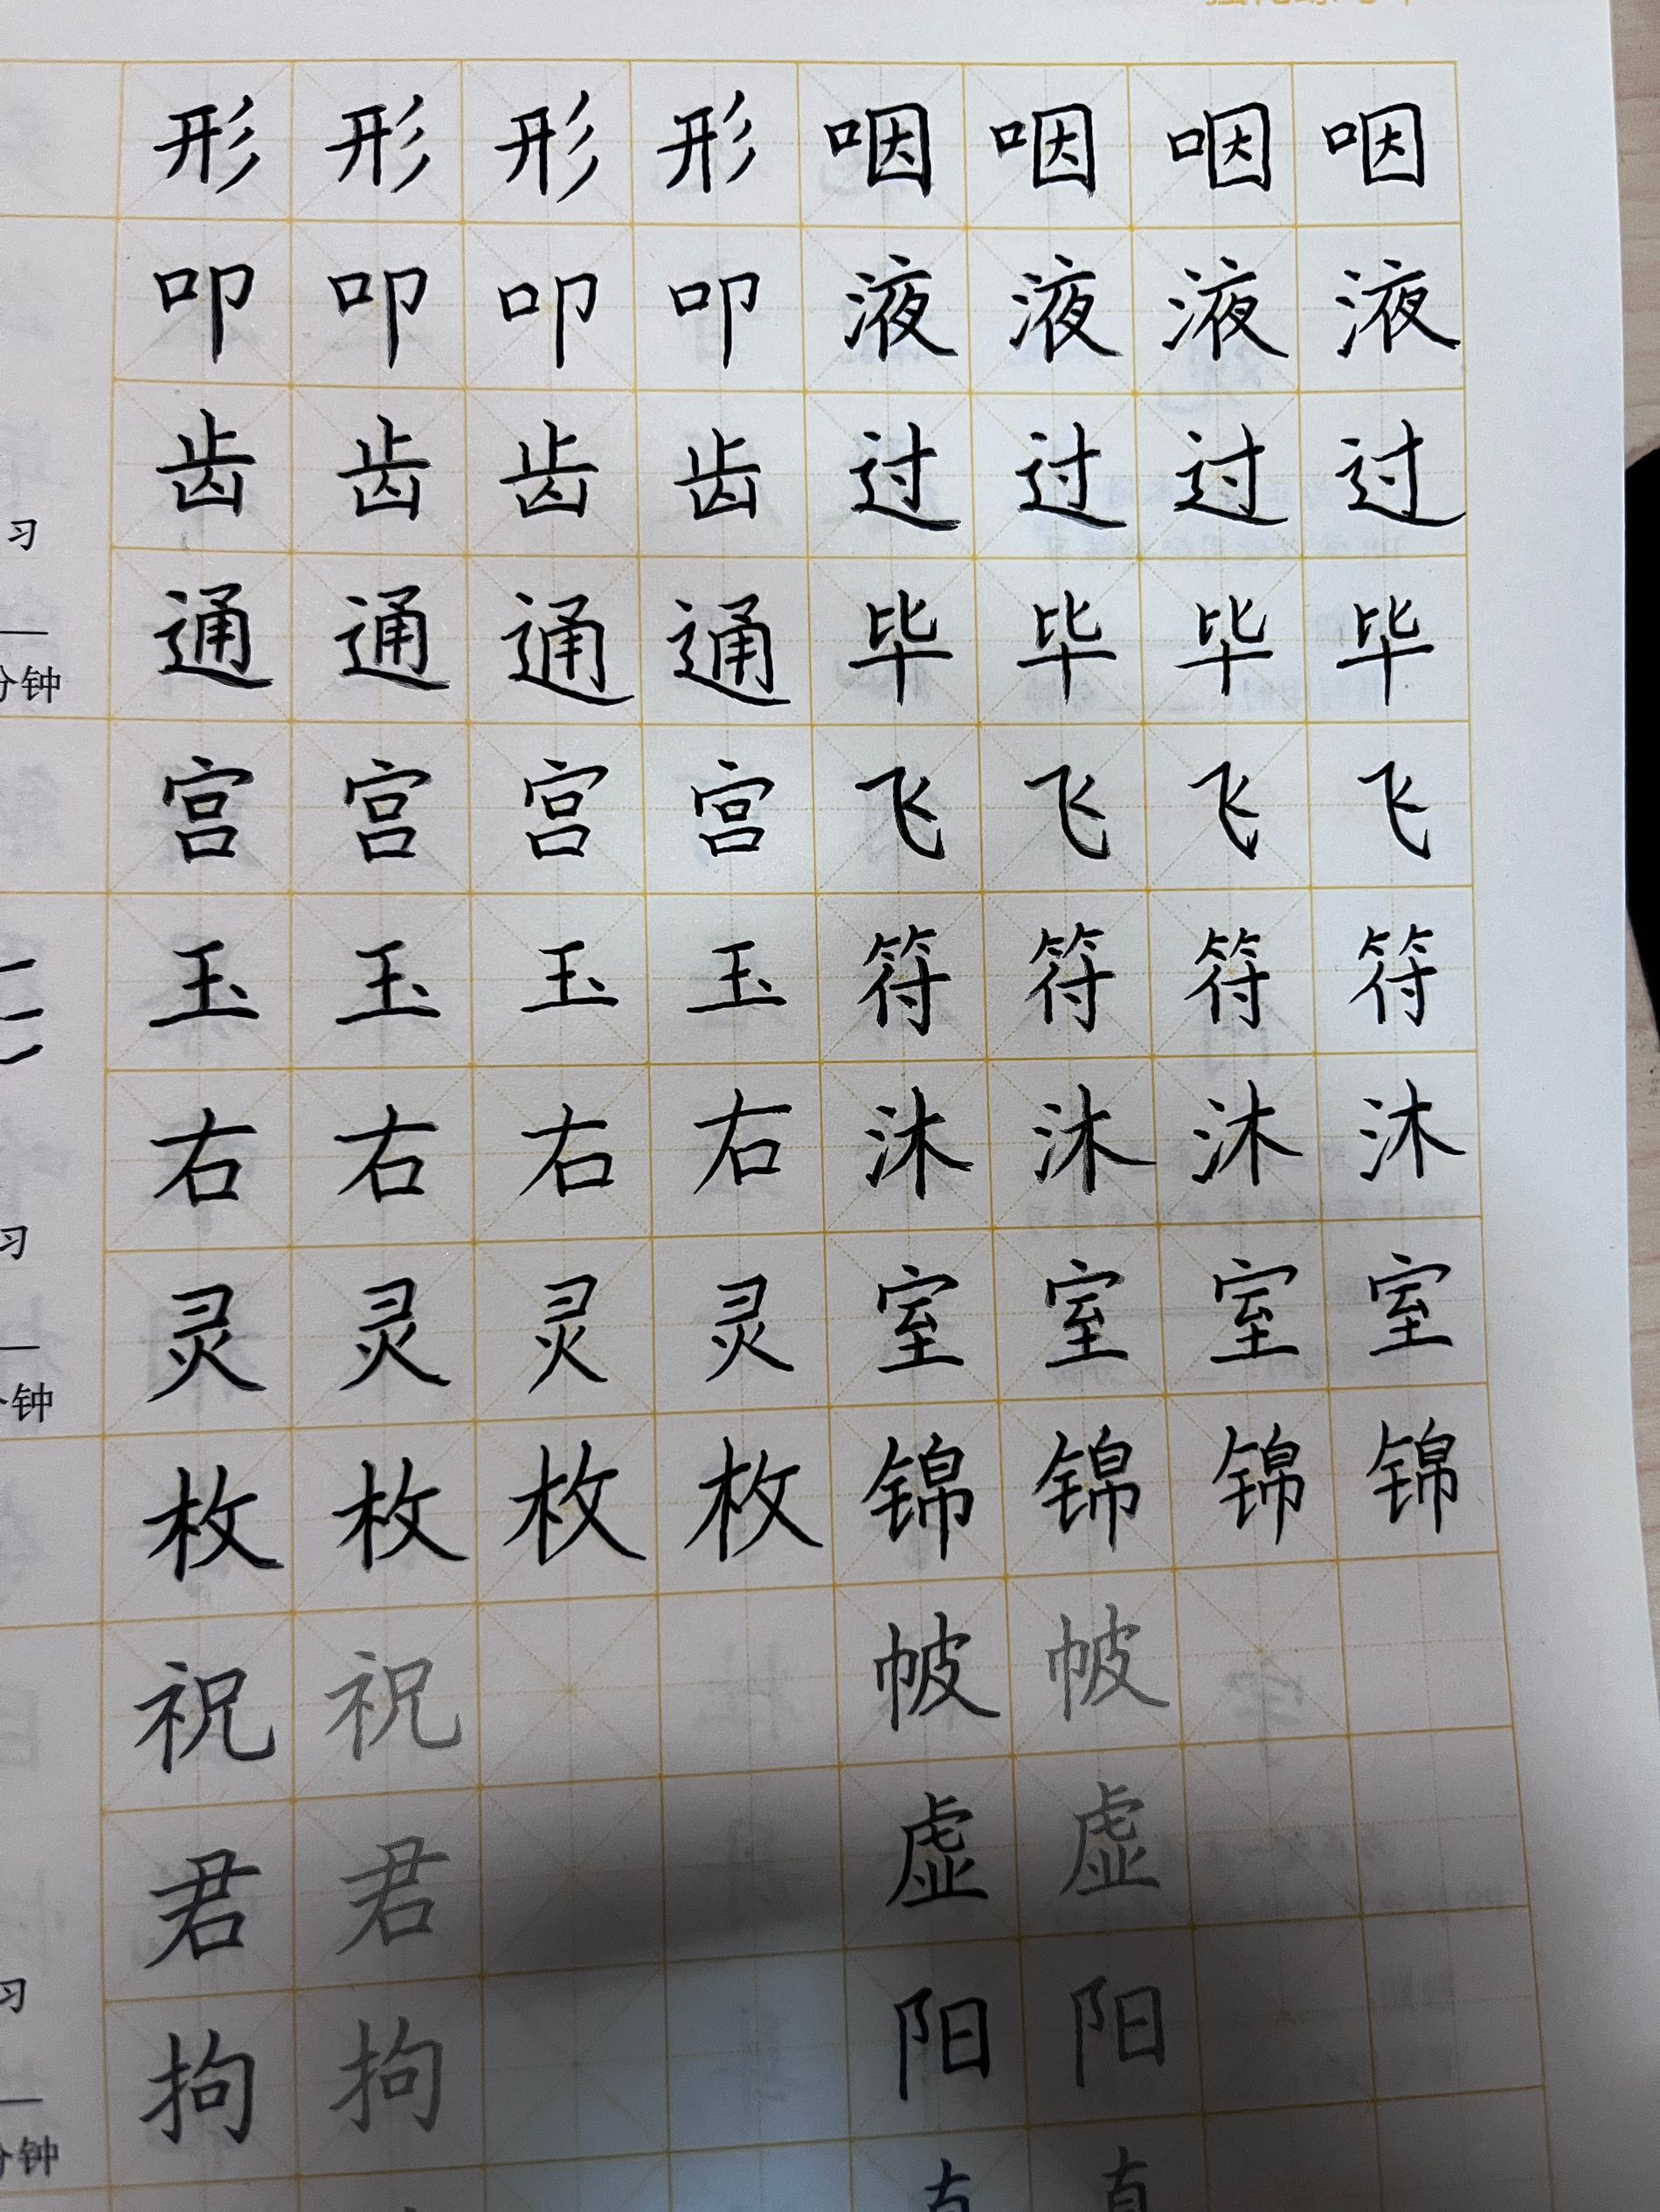 形 形 形 形 咽 咽 咽 咽
叩 叩 叩 叩 液 液 液 液
齿 齿 齿 齿 过 过 过 过
习
通 通 通 通 毕 毕 毕 毕
分钟
宫 宫 宫 宫 飞 飞 飞 飞
玉 玉 玉 玉 符 符 符 符
右 右 右 右 沐 沐 沐 沐
习
灵 灵 灵 灵 室 室 室 室
分钟
枚 枚 枚 枚 锦 锦 锦 锦
祝 祝 帔 帔
君 君 虚 虚
习
拘 拘 阳 阳
分钟